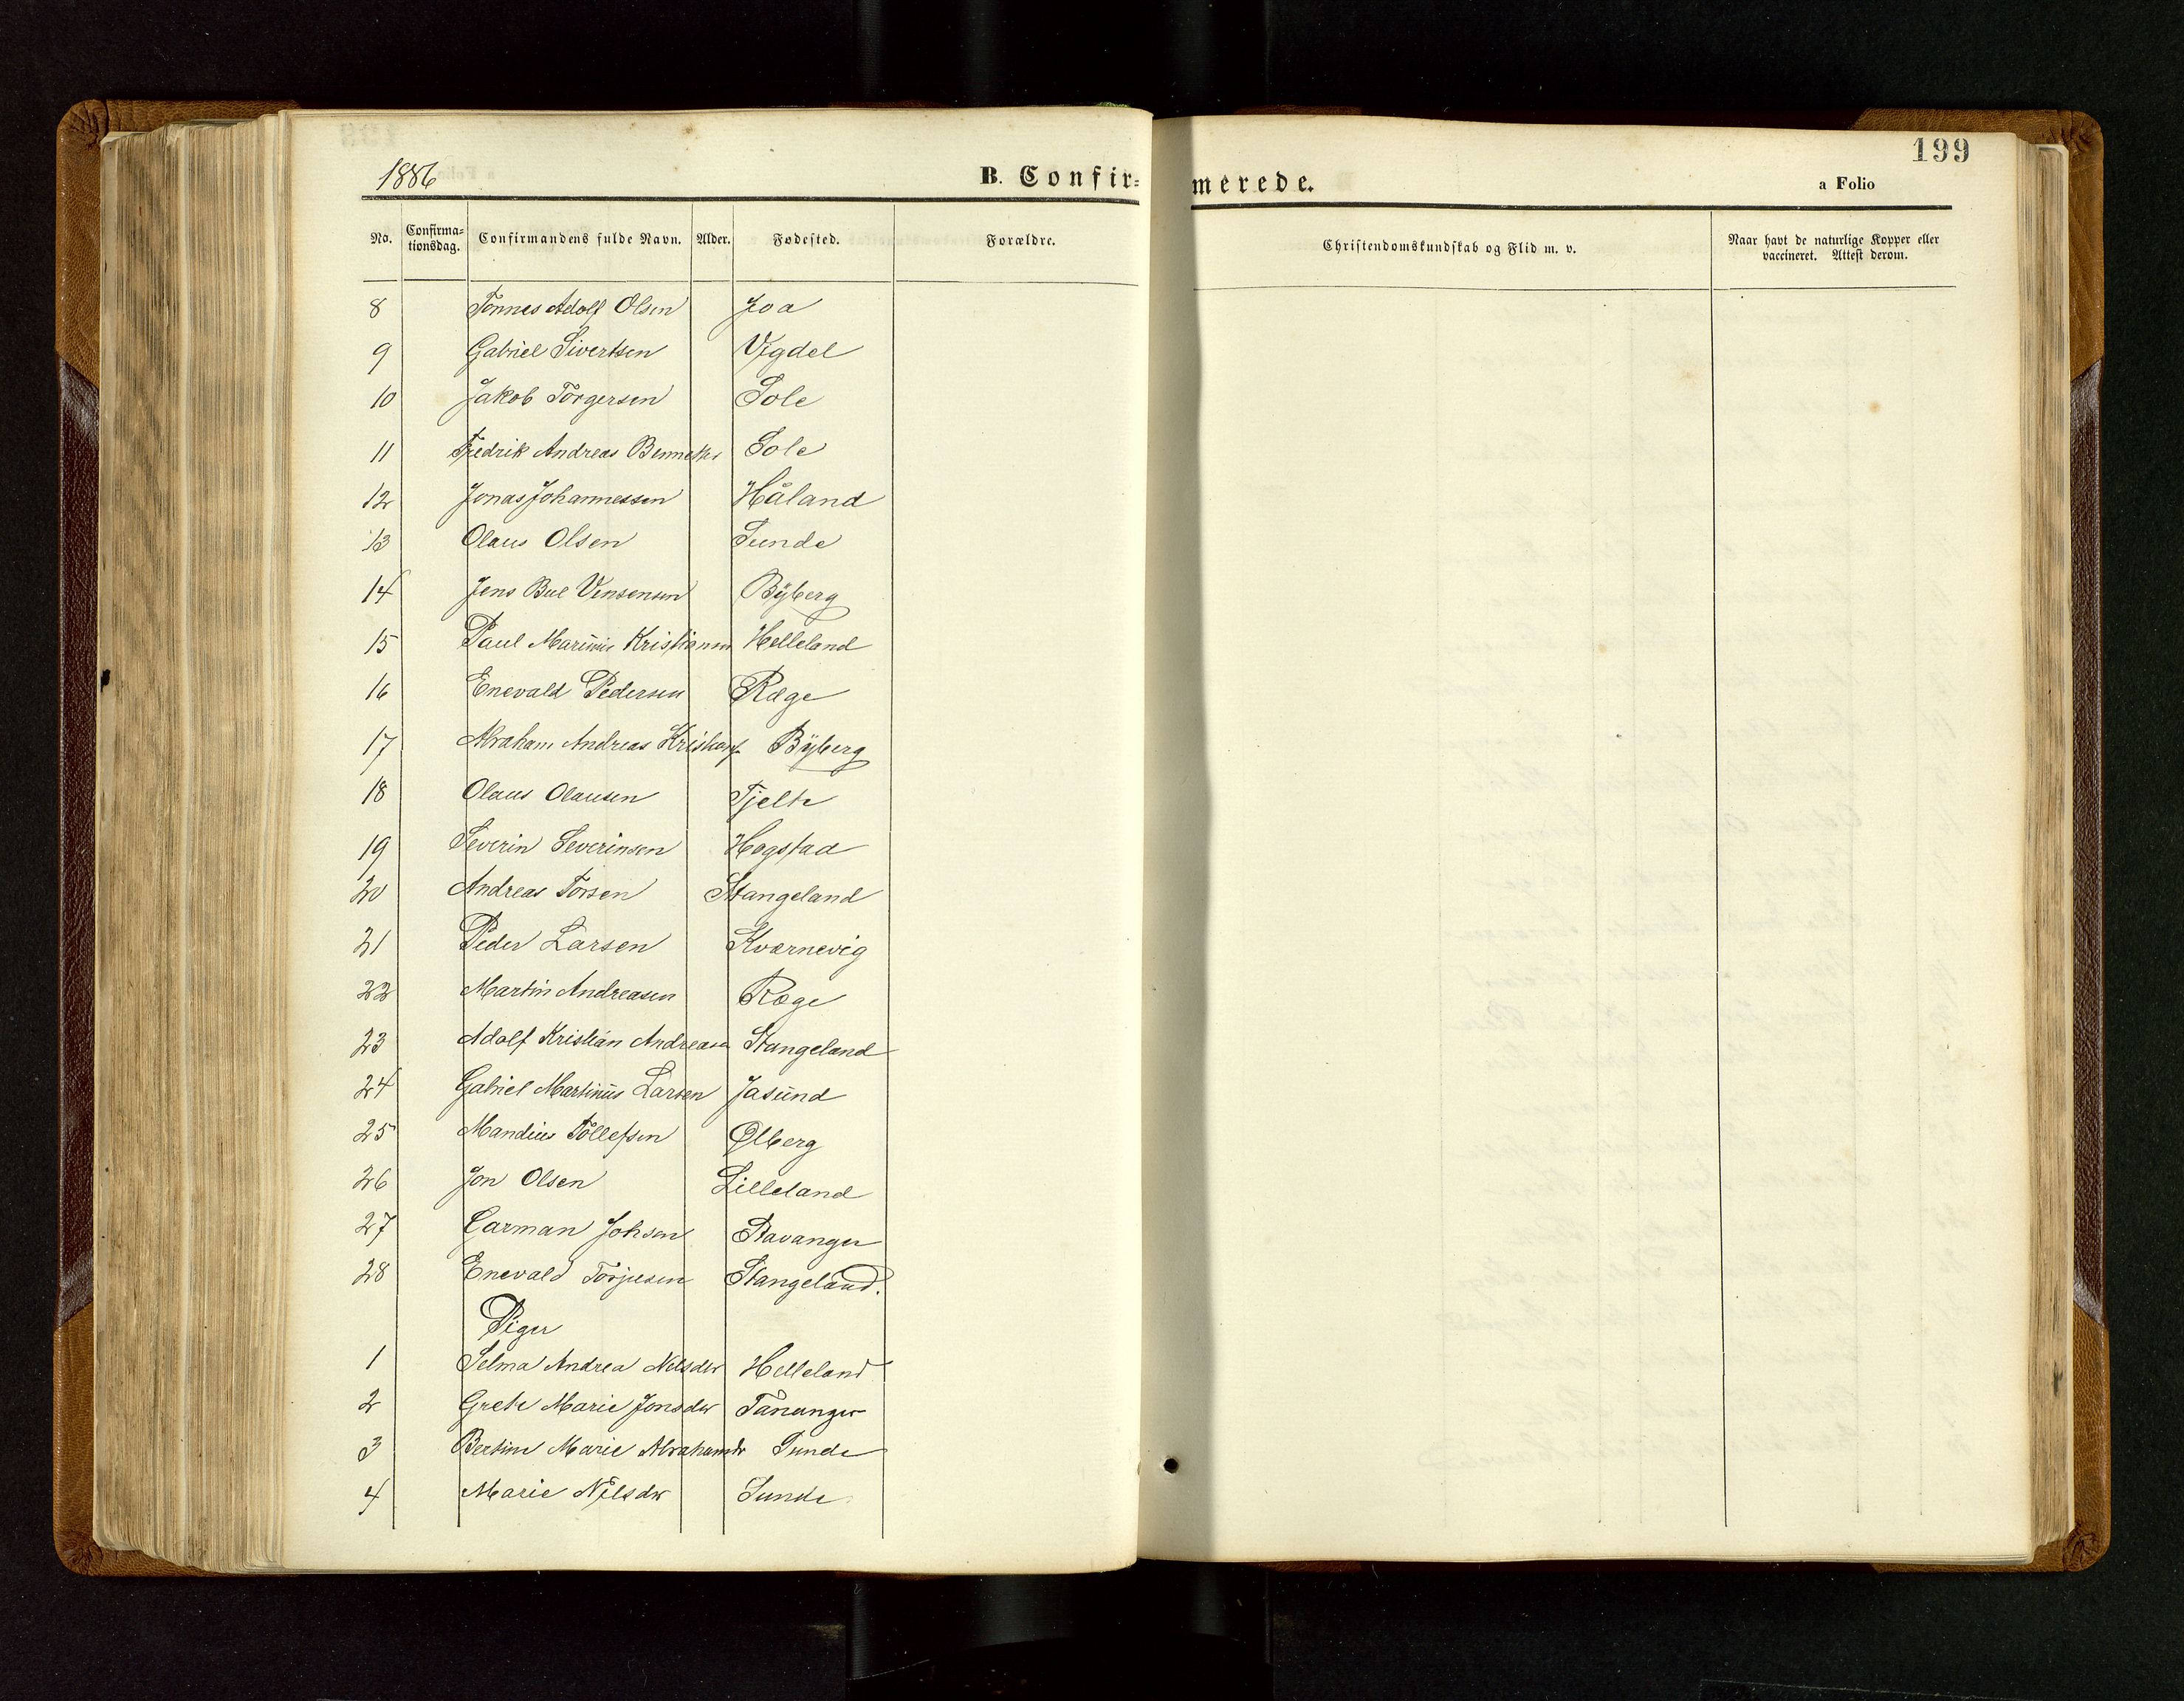 199
1886 B. Confir= merede. a Folio
No. Confirma= tionsdag. Confirmandens fulde Navn. Alder. Fødested. Forældre. Christendomskundskab og Flid m. v. Naar havt de naturlige Kopper eller vaccineret. Attest derom.
8 Tönnes Adolf Olsen Joa
9 Gabriel Sivertsen Vigdel
10 Jakob Torgersen Sole
11 Fredrik Andreas Sole
12 Jonas Johannessen Håland
13 Olaus Olsen Sunde
14 Jens Bul Vensensen Byberg
15 Paul Marinus Kristiansen Helleland
16 Enevald Pedersen Ræge
17 Abraham Andreas Byberg
18 Olaus Olausen Tjelte
19 Severin Severinsen Hogstad
20 Andreas Torsen Stangeland
21 Peder Larsen Kvernevig
22 Martin Andreasen Ræge
23 Adolf Kristian Andreasen Stangeland
24 Gabriel Martinus Larsen Jasund
25 Mandius Tollefsen Ølberg
26 Jon Olsen Lilleland
27 Garman Johsen Stavanger
28 Enevald Torjusen Stangeland.
Piger
1 Selma Andrea Nelsdtr Helleland
2 Grete Marie Jonsdtr Tananger
3 Bertine Marie Abrahamdr Sunde
4 Marie Nilsdtr Sunde